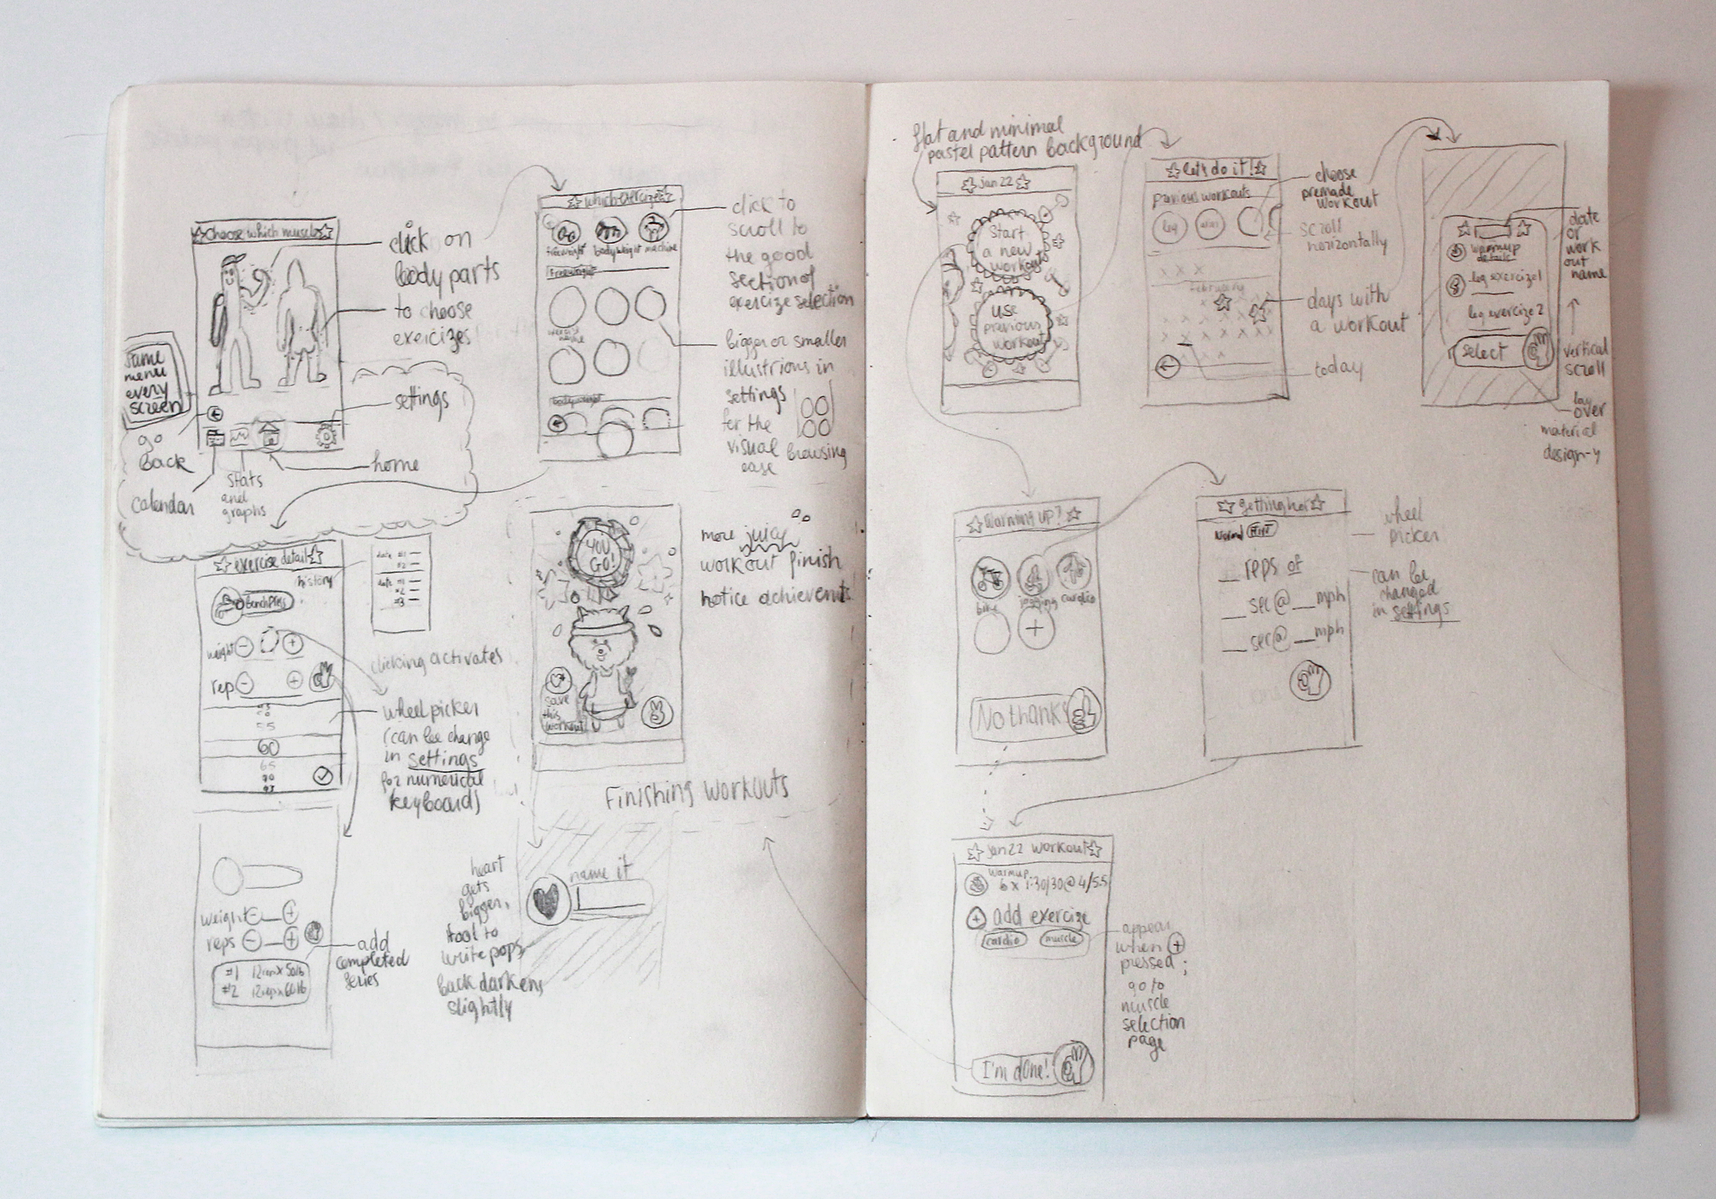 Choose which muscle
click on
body parts
to choose
exercizes
same
menu
every
screen
settings
go
back
home
calendar
stats
and
graphs
which exercize
freeweight
bodyweight
machine
freeweight
bodyweight
click to
scroll to
the good
section of
exercize selection
bigger or smaller
illustrions in
settings
for the
visual browsing
ease
exercise detail
history
bench press
weight
rep
55
60
65
70
date #1
#2
date #1
#2
#3
clicking activates
wheel picker
(can be change
in settings
for numerical
keyboard)
YOU
GO!
save
this
workout
more juicy
workout finish
notice achievents
Finishing workouts
weight
reps
#1 12rep x 50lb
#2 12rep x 60lb
add
completed
series
heart
gets
bigger,
tool to
write pops,
back darkens
slightly
name it
flat and minimal
pastel pattern background
jan 22
Start
a new
workout
use
previous
workout
let's do it!
previous workouts
leg
february
choose
premade
workout
scroll
horizontally
days with
a workout
today
warmup
details
leg exercize 1
leg exercize 2
select
date
or
work
out
name
vertical
scroll
lay
over
material
design-y
Warming up?
bike
jogging
cardio
No thanks
getting hot
Normal HIIT
reps of
sec@ mph
sec@ mph
wheel
picker
can be
changed
in settings
jan 22 workout
warmup
6 x 1:30/30@4/5.5
add exercize
cardio
muscle
appear
when +
pressed;
go to
muscle
selection
page
I'm done!